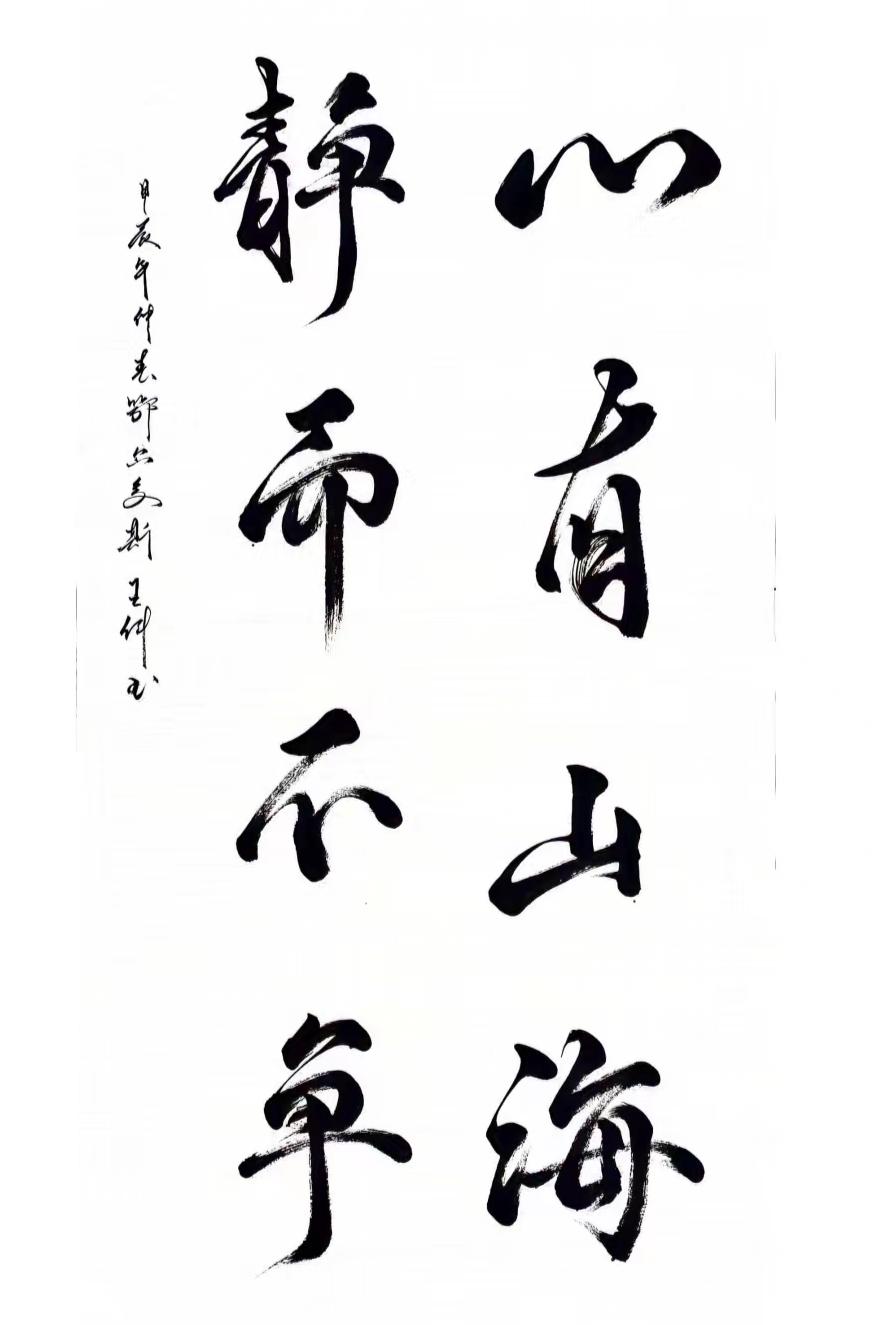 心有山海
静而不争
甲辰年仲春鄂尔多斯王伟书